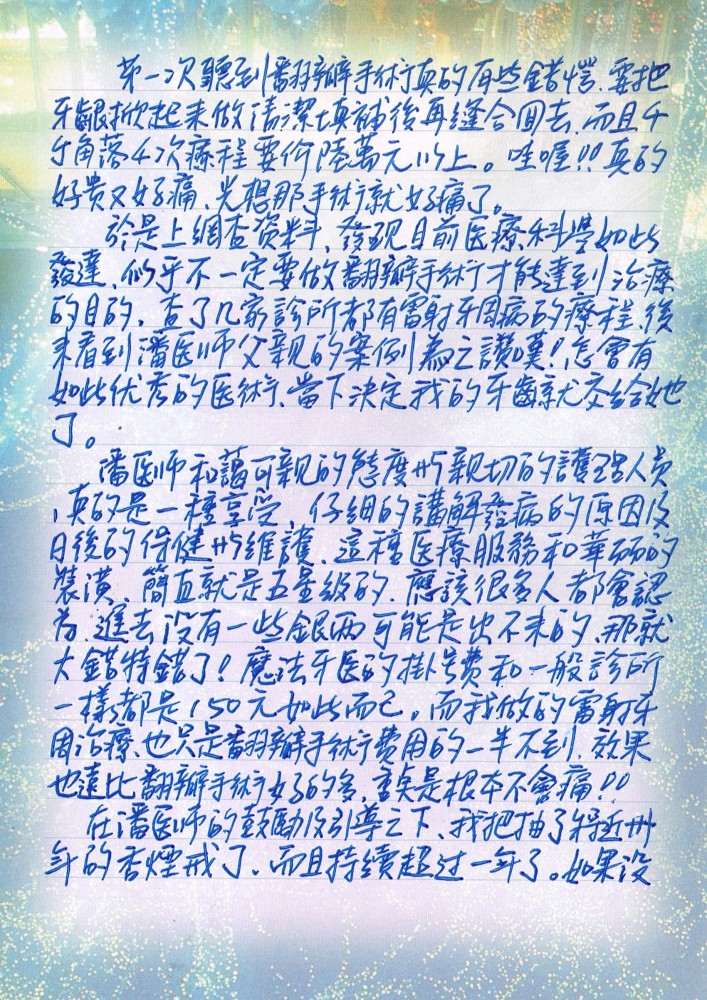 第一次聽到翻瓣手術真的有些錯愕、要把
牙齦掀起來做清潔填補後再縫合回去、而且4
個角落4次療程要價陸萬元以上。哇喔!!真的
好貴又好痛、光想那手術就好痛了。
於是上網查資料、發現目前医療科學如此
發達、似乎不一定要做翻瓣手術才能達到治療
的目的、查了几家診所都有雷射牙周病的療程、後
來看到潘医师父親的案例為之讚嘆!怎會有
如此优秀的医術、當下決定我的牙齒就交給她
了。
潘医师和藹可親的態度与親切的護理人员
、真的是一種享受、仔細的講解發病的原因及
日後的保健与維護、這種医療服務和華丽的
裝潢、簡直就是五星級的、應該很多人都會認
為、進去沒有一些銀兩可能是出不來的、那就
大錯特錯了!魔法牙医的掛号費和一般診所
一樣都是150元如此而已。而我做的雷射牙
周治療、也只是翻瓣手術費用的一半不到、效果
也遠比翻瓣手術好的多、重点是根本不會痛!!
在潘医师的鼓勵及引導之下、我把抽了將近卅
年的香煙戒了、而且持續超过一年了。如果没